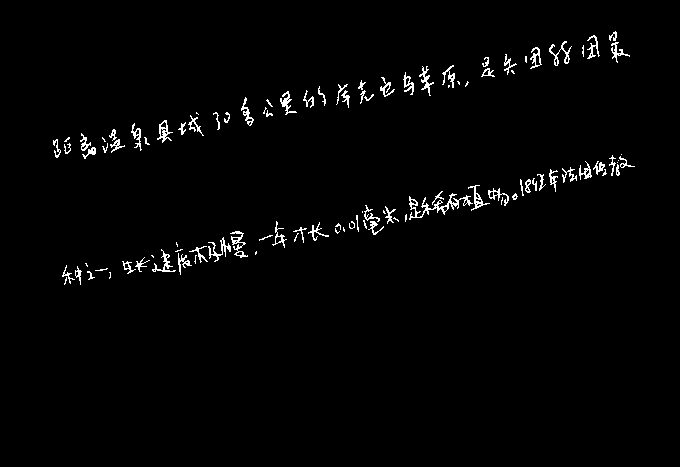 距离温泉县城30多公里的库克它乌草原,是兵团88团最
种之一,生长速度极慢,一年才长0.01毫米,是稀有植物。1892年法国传教